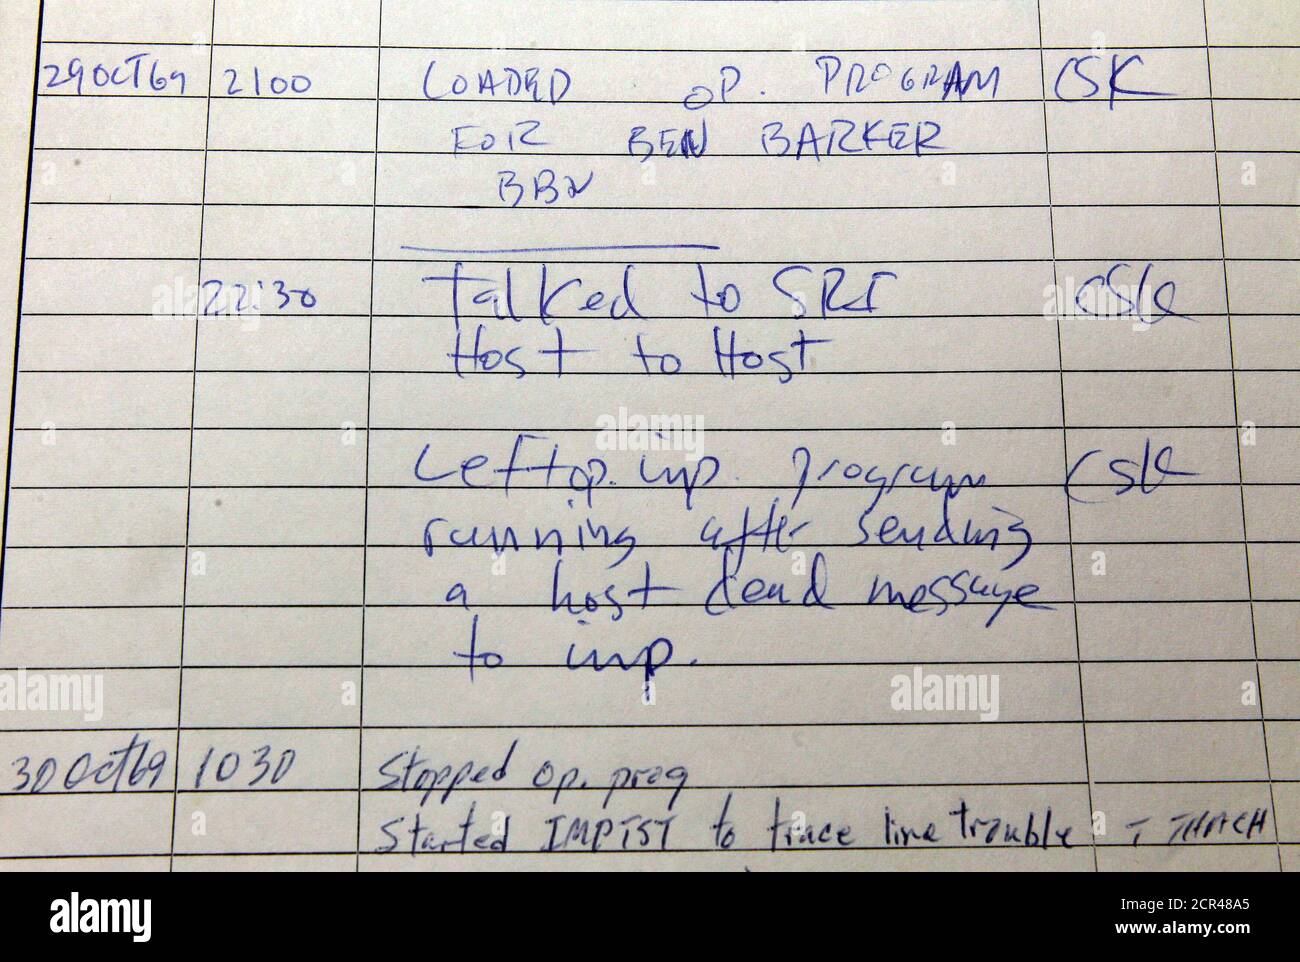 29 OCT 69 2100 LOADED OP. PROGRAM CSK
FOR BEN BARKER
BBN
22:30 Talked to SRI CSK
Host to Host
Left op. imp. program CSK
running after sending
a host dead message
to imp.
30 Oct 69 1030 Stopped op. prog
Started IMPTST to trace line trouble T THACH
alamy
Image ID: 2CR48A5
www.alamy.com